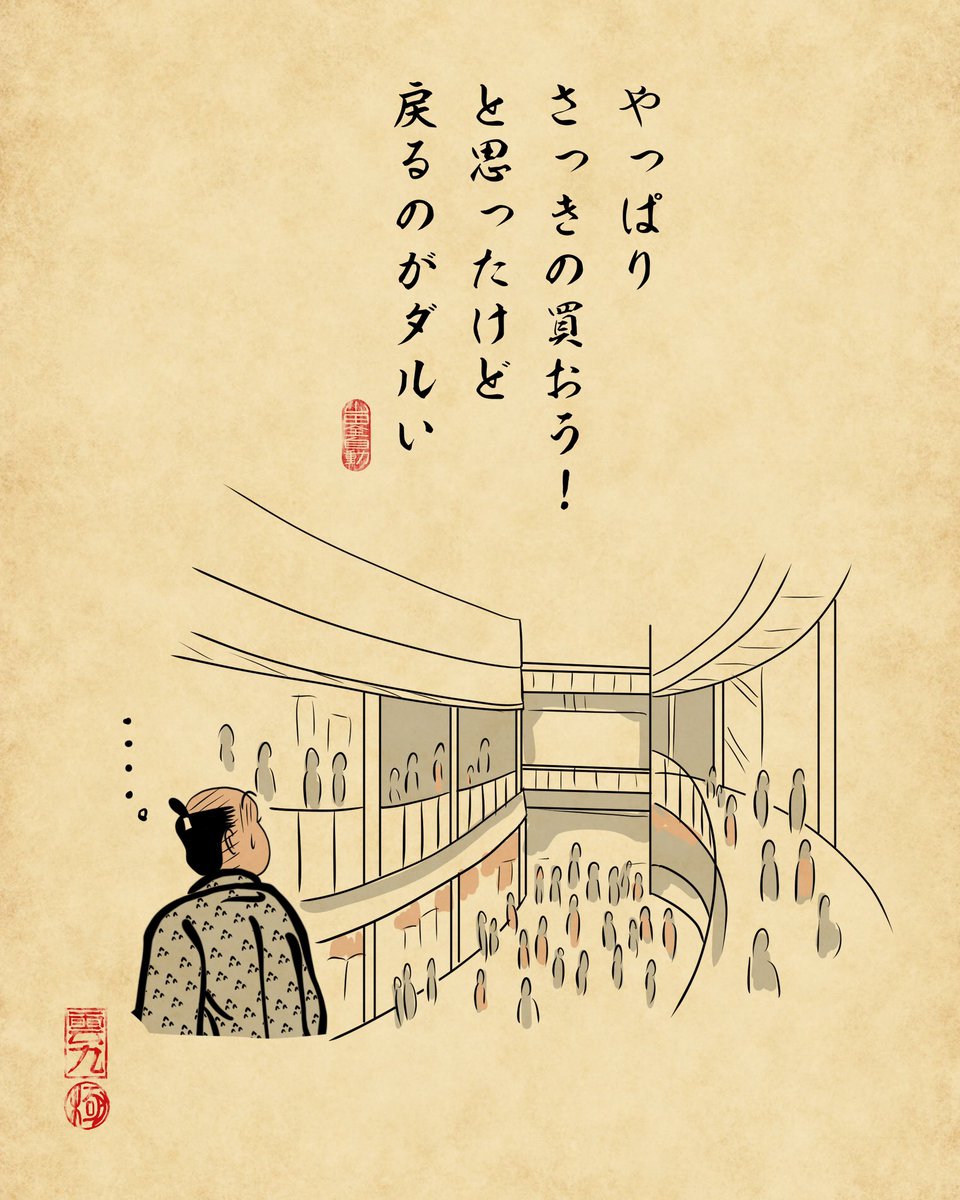 やっぱり
さっきの買おう！
と思ったけど
戻るのがダルい